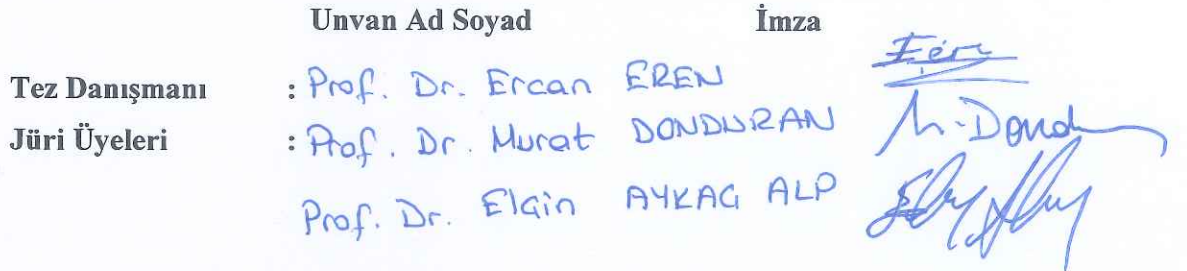 Unvan Ad Soyad İmza
Tez Danışmanı : Prof. Dr. Ercan EREN
Jüri Üyeleri : Prof. Dr. Murat DONDURAN M. Dond
Prof. Dr. Elçin AYKAÇ ALP